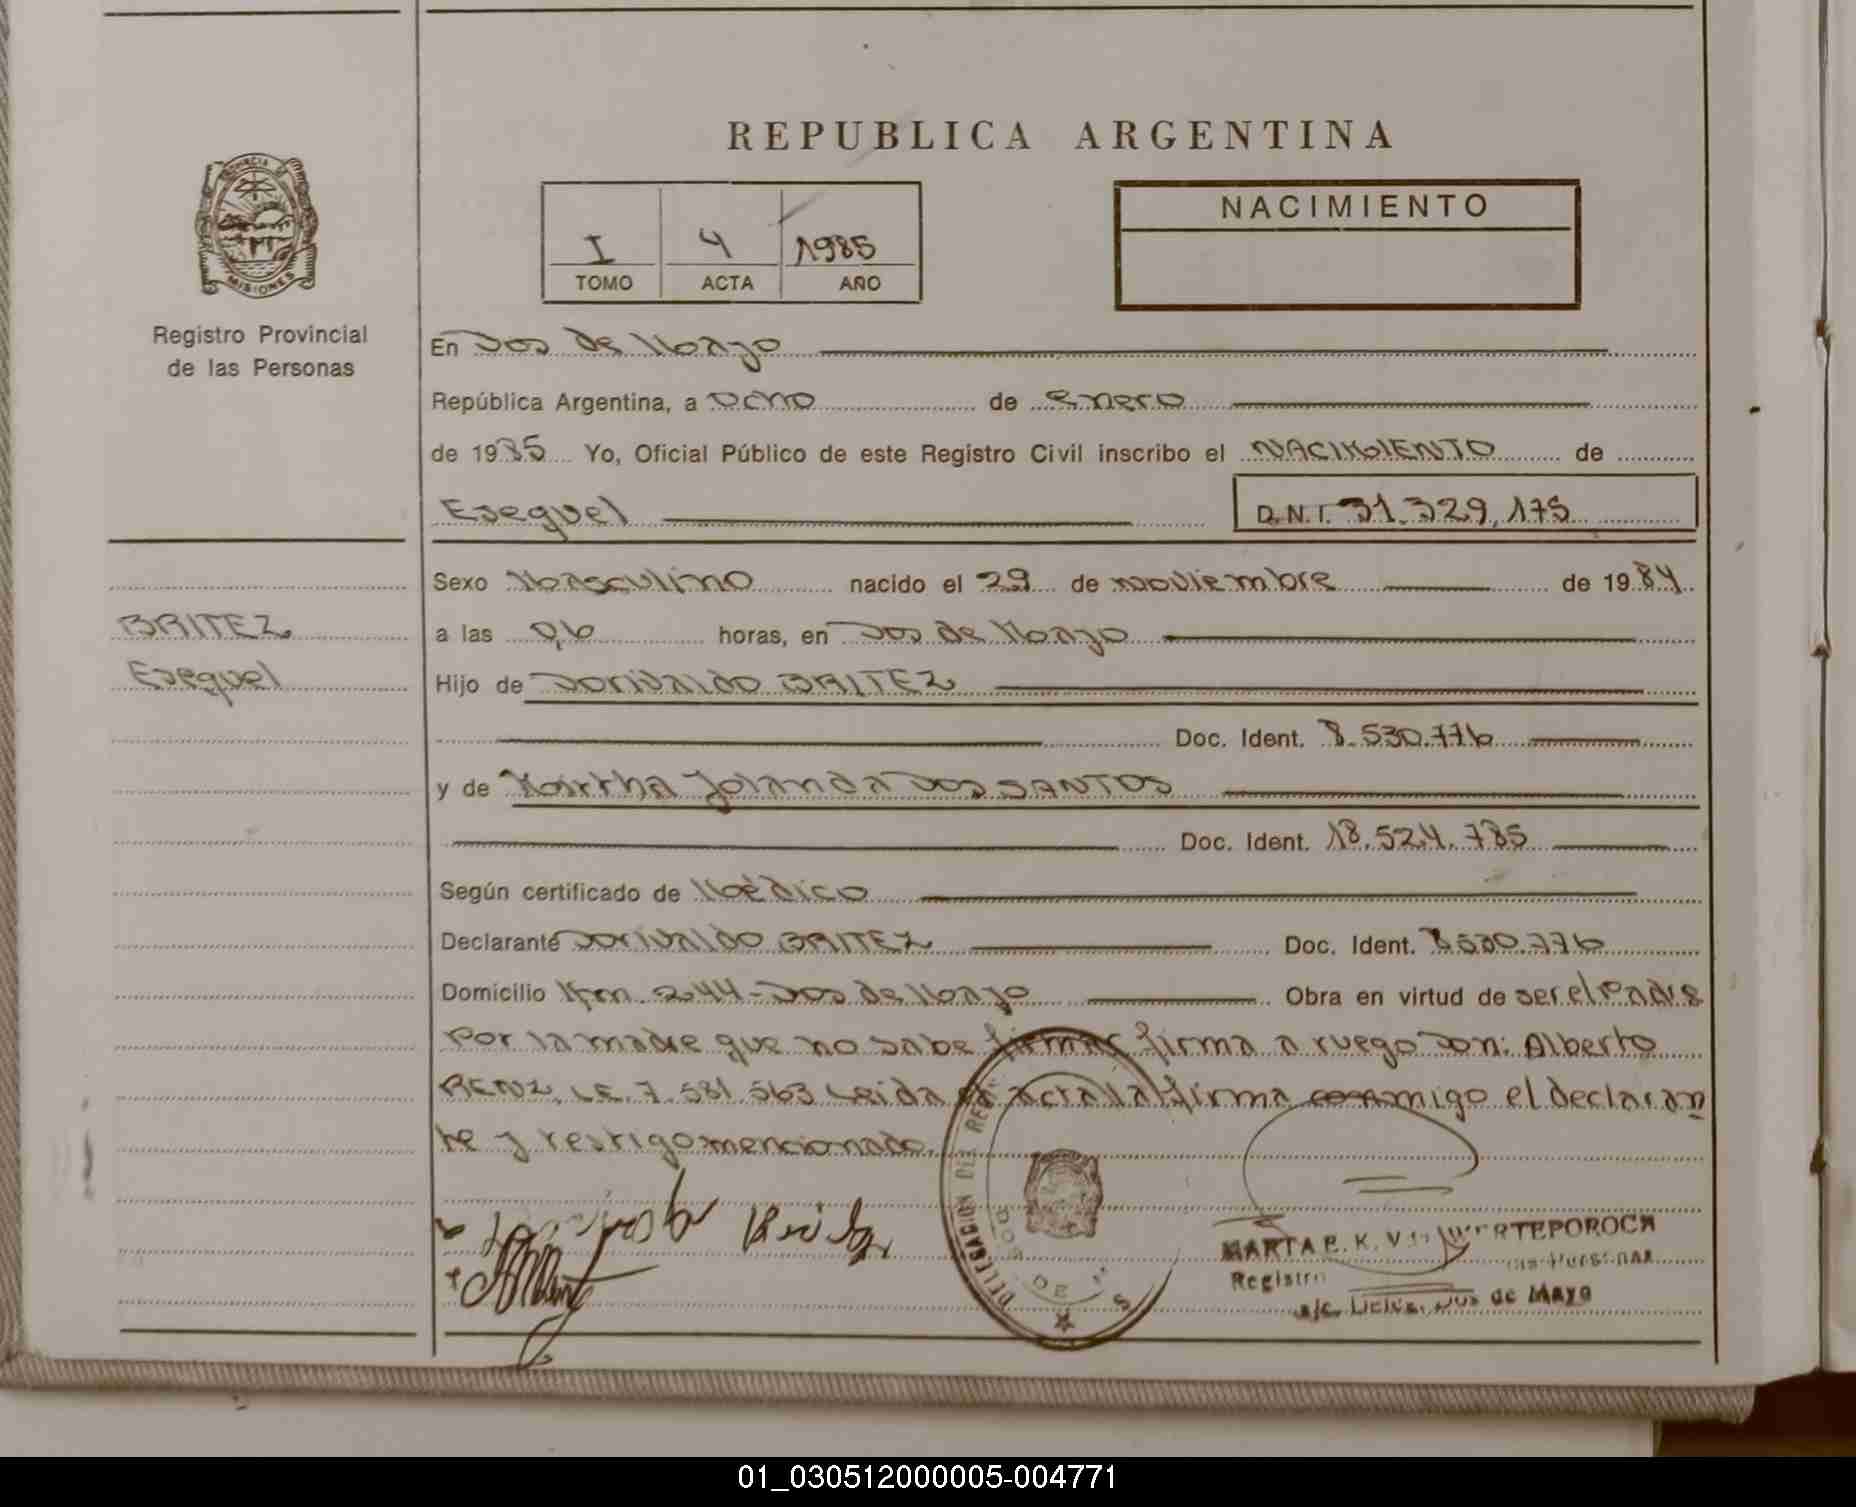 PROVINCIA DE
MISIONES
Registro Provincial
de las Personas
BRITEZ
Esequel
REPUBLICA ARGENTINA
I 4 1985
TOMO ACTA AÑO
NACIMIENTO
En Dos de Mayo
República Argentina, a ocho de Enero
de 1985 Yo, Oficial Público de este Registro Civil inscribo el NACIMIENTO de
Esequel D.N.I. 31.329.175
Sexo Masculino nacido el 29 de noviembre de 1984
a las 0,6 horas, en Dos de Mayo
Hijo de Dorivaldo BRITEZ
Doc. Ident. 8.530.776
y de Martha Yolanda DOS SANTOS
Doc. Ident. 18.524.785
Según certificado de Médico
Declarante Dorivaldo BRITEZ Doc. Ident. 8.530.776
Domicilio Km. 244-Dos de Mayo Obra en virtud de ser el Padre
Por la madre que no sabe firmar firma a ruego Don: Alberto
RENZ, L.E. 7.581.563 Leida el acta la firma conmigo el declaran
te y testigo mencionado.
DELEGACION DEL REG
DOS DE
MARTA E. K. V
Registro
a/c. Deleg. Dos de Mayo
01_030512000005-004771